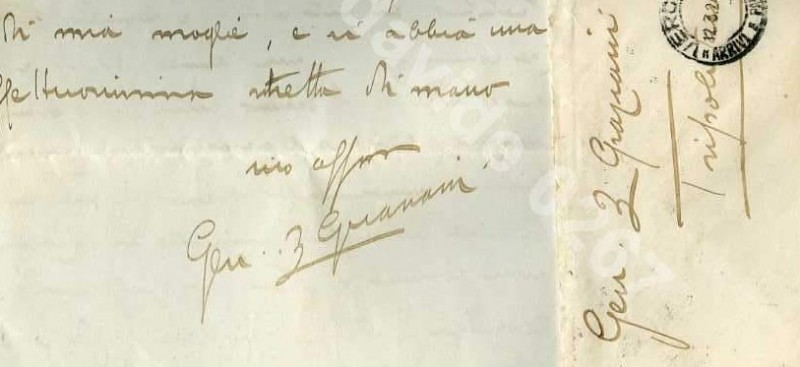 di mia moglie, e si abbia una
affettuosissima stretta di mano
suo aff.mo
Gen. Graziani
Gen. Graziani
Tripoli
VERO
12.32
ARRIVI E PA
davide 6267